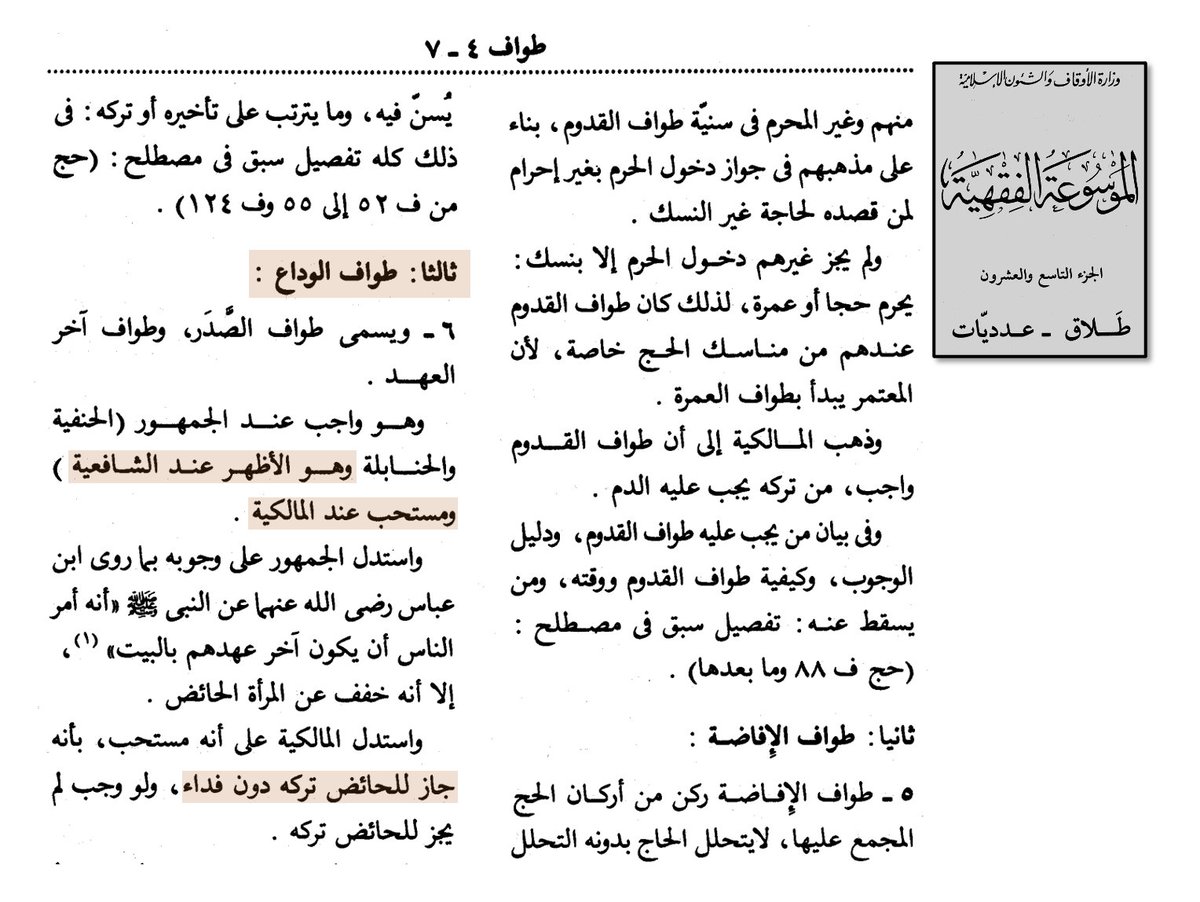 طواف ٤ - ٧
منهم وغير المحرم فى سنيّة طواف القدوم، بناء
على مذهبهم فى جواز دخول الحرم بغير إحرام
لمن قصده لحاجة غير النسك .
ولم يجز غيرهم دخول الحرم إلا بنسك :
يحرم حجا أو عمرة، لذلك كان طواف القدوم
عندهم من مناسك الحج خاصة، لأن
المعتمر يبدأ بطواف العمرة .
وذهب المالكية إلى أن طواف القدوم
واجب، من تركه يجب عليه الدم .
وفى بيان من يجب عليه طواف القدوم، ودليل
الوجوب، وكيفية طواف القدوم ووقته، ومن
يسقط عنه : تفصيل سبق فى مصطلح :
(حج ف ٨٨ وما بعدها) .
ثانيا : طواف الإفاضة :
٥ - طواف الإفاضة ركن من أركان الحج
المجمع عليها، لايتحلل الحاج بدونه التحلل
يُسنّ فيه، وما يترتب على تأخيره أو تركه : فى
ذلك كله تفصيل سبق فى مصطلح : (حج
من ف ٥٢ إلى ٥٥ وف ١٢٤) .
ثالثا : طواف الوداع :
٦ - ويسمى طواف الصَّدَر، وطواف آخر
العهد .
وهو واجب عند الجمهور (الحنفية
والحنابلة وهو الأظهر عند الشافعية )
ومستحب عند المالكية .
واستدل الجمهور على وجوبه بما روى ابن
عباس رضى الله عنهما عن النبى ﷺ «أنه أمر
الناس أن يكون آخر عهدهم بالبيت» (١)،
إلا أنه خفف عن المرأة الحائض .
واستدل المالكية على أنه مستحب، بأنه
جاز للحائض تركه دون فداء، ولو وجب لم
يجز للحائض تركه .
وزارة الأوقاف والشئون الإسلامية
الموسوعة الفقهية
الجزء التاسع والعشرون
طَلاق - عدديّات